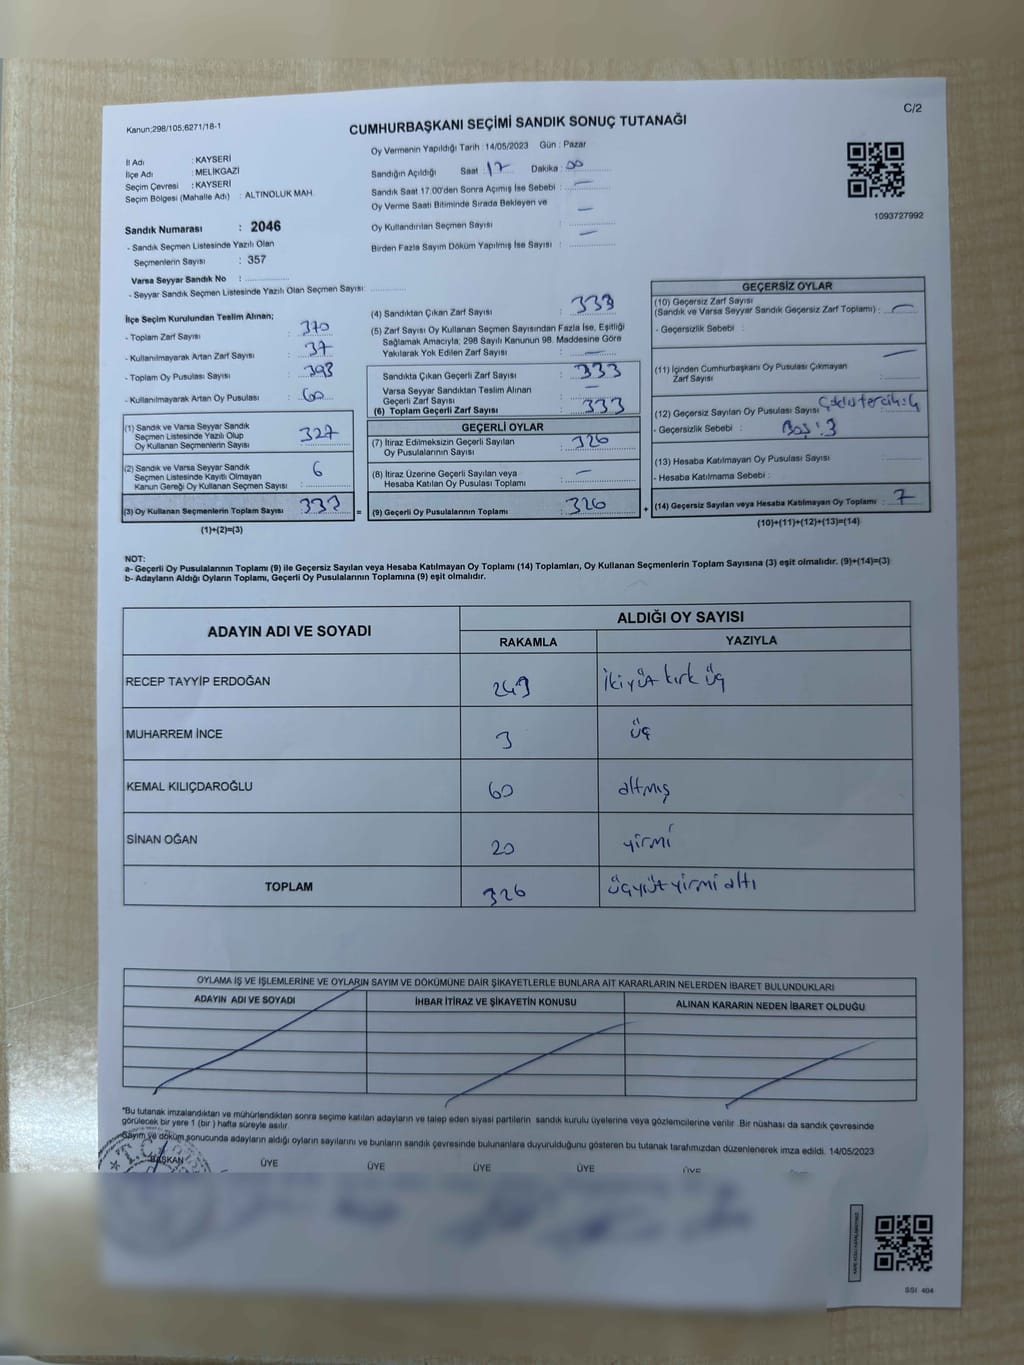 C/2
Kanun;298/105;6271/18-1
CUMHURBAŞKANI SEÇİMİ SANDIK SONUÇ TUTANAĞI
İl Adı : KAYSERİ
İlçe Adı : MELİKGAZİ
Seçim Çevresi : KAYSERİ
Seçim Bölgesi (Mahalle Adı) : ALTINOLUK MAH.
Sandık Numarası : 2046
- Sandık Seçmen Listesinde Yazılı Olan
Seçmenlerin Sayısı : 357
Varsa Seyyar Sandık No :
- Seyyar Sandık Seçmen Listesinde Yazılı Olan Seçmen Sayısı:
Oy Vermenin Yapıldığı Tarih : 14/05/2023 Gün : Pazar
Sandığın Açıldığı Saat : 17 Dakika : 00
Sandık Saat 17:00'den Sonra Açımış İse Sebebi : —
Oy Verme Saati Bitiminde Sırada Bekleyen ve
Oy Kullandırılan Seçmen Sayısı : —
Birden Fazla Sayım Döküm Yapılmış İse Sayısı : —
1093727992
İlçe Seçim Kurulundan Teslim Alınan;
- Toplam Zarf Sayısı : 370
- Kullanılmayarak Artan Zarf Sayısı : 37
- Toplam Oy Pusulası Sayısı : 393
- Kullanılmayarak Artan Oy Pusulası : 60
(1) Sandık ve Varsa Seyyar Sandık
Seçmen Listesinde Yazılı Olup
Oy Kullanan Seçmenlerin Sayısı : 327
(2) Sandık ve Varsa Seyyar Sandık
Seçmen Listesinde Kayıtlı Olmayan
Kanun Gereği Oy Kullanan Seçmen Sayısı : 6
(3) Oy Kullanan Seçmenlerin Toplam Sayısı : 333
(1)+(2)=(3)
(4) Sandıktan Çıkan Zarf Sayısı : 333
(5) Zarf Sayısı Oy Kullanan Seçmen Sayısından Fazla İse, Eşitliği
Sağlamak Amacıyla; 298 Sayılı Kanunun 98. Maddesine Göre
Yakılarak Yok Edilen Zarf Sayısı : —
Sandıkta Çıkan Geçerli Zarf Sayısı : 333
Varsa Seyyar Sandıktan Teslim Alınan
Geçerli Zarf Sayısı : —
(6) Toplam Geçerli Zarf Sayısı : 333
GEÇERLİ OYLAR
(7) İtiraz Edilmeksizin Geçerli Sayılan
Oy Pusulalarının Sayısı : 326
(8) İtiraz Üzerine Geçerli Sayılan veya
Hesaba Katılan Oy Pusulası Toplamı : —
= (9) Geçerli Oy Pusulalarının Toplamı : 326
GEÇERSİZ OYLAR
(10) Geçersiz Zarf Sayısı
(Sandık ve Varsa Seyyar Sandık Geçersiz Zarf Toplamı) : —
- Geçersizlik Sebebi :
(11) İçinden Cumhurbaşkanı Oy Pusulası Çıkmayan
Zarf Sayısı : —
(12) Geçersiz Sayılan Oy Pusulası Sayısı
- Geçersizlik Sebebi : Boş : 3
(13) Hesaba Katılmayan Oy Pusulası Sayısı :
- Hesaba Katılmama Sebebi :
+ (14) Geçersiz Sayılan veya Hesaba Katılmayan Oy Toplamı : 7
(10)+(11)+(12)+(13)=(14)
NOT:
a- Geçerli Oy Pusulalarının Toplamı (9) ile Geçersiz Sayılan veya Hesaba Katılmayan Oy Toplamı (14) Toplamları, Oy Kullanan Seçmenlerin Toplam Sayısına (3) eşit olmalıdır. (9)+(14)=(3)
b- Adayların Aldığı Oyların Toplamı, Geçerli Oy Pusulalarının Toplamına (9) eşit olmalıdır.
ADAYIN ADI VE SOYADI ALDIĞI OY SAYISI
RAKAMLA YAZIYLA
RECEP TAYYİP ERDOĞAN 243 ikiyüz kırk üç
MUHARREM İNCE 3 üç
KEMAL KILIÇDAROĞLU 60 altmış
SİNAN OĞAN 20 yirmi
TOPLAM 326 üçyüz yirmi altı
OYLAMA İŞ VE İŞLEMLERİNE VE OYLARIN SAYIM VE DÖKÜMÜNE DAİR ŞİKAYETLERLE BUNLARA AİT KARARLARIN NELERDEN İBARET BULUNDUKLARI
ADAYIN ADI VE SOYADI İHBAR İTİRAZ VE ŞİKAYETİN KONUSU ALINAN KARARIN NEDEN İBARET OLDUĞU
*Bu tutanak imzalandıktan ve mühürlendikten sonra seçime katılan adayların ve talep eden siyasi partilerin sandık kurulu üyelerine veya gözlemcilerine verilir. Bir nüshası da sandık çevresinde
görülecek bir yere 1 (bir ) hafta süreyle asılır.
Sayım ve döküm sonucunda adayların aldığı oyların sayılarını ve bunların sandık çevresinde bulunanlara duyurulduğunu gösteren bu tutanak tarafımızdan düzenlenerek imza edildi. 14/05/2023
BAŞKAN ÜYE ÜYE ÜYE ÜYE ÜYE
SSI 404